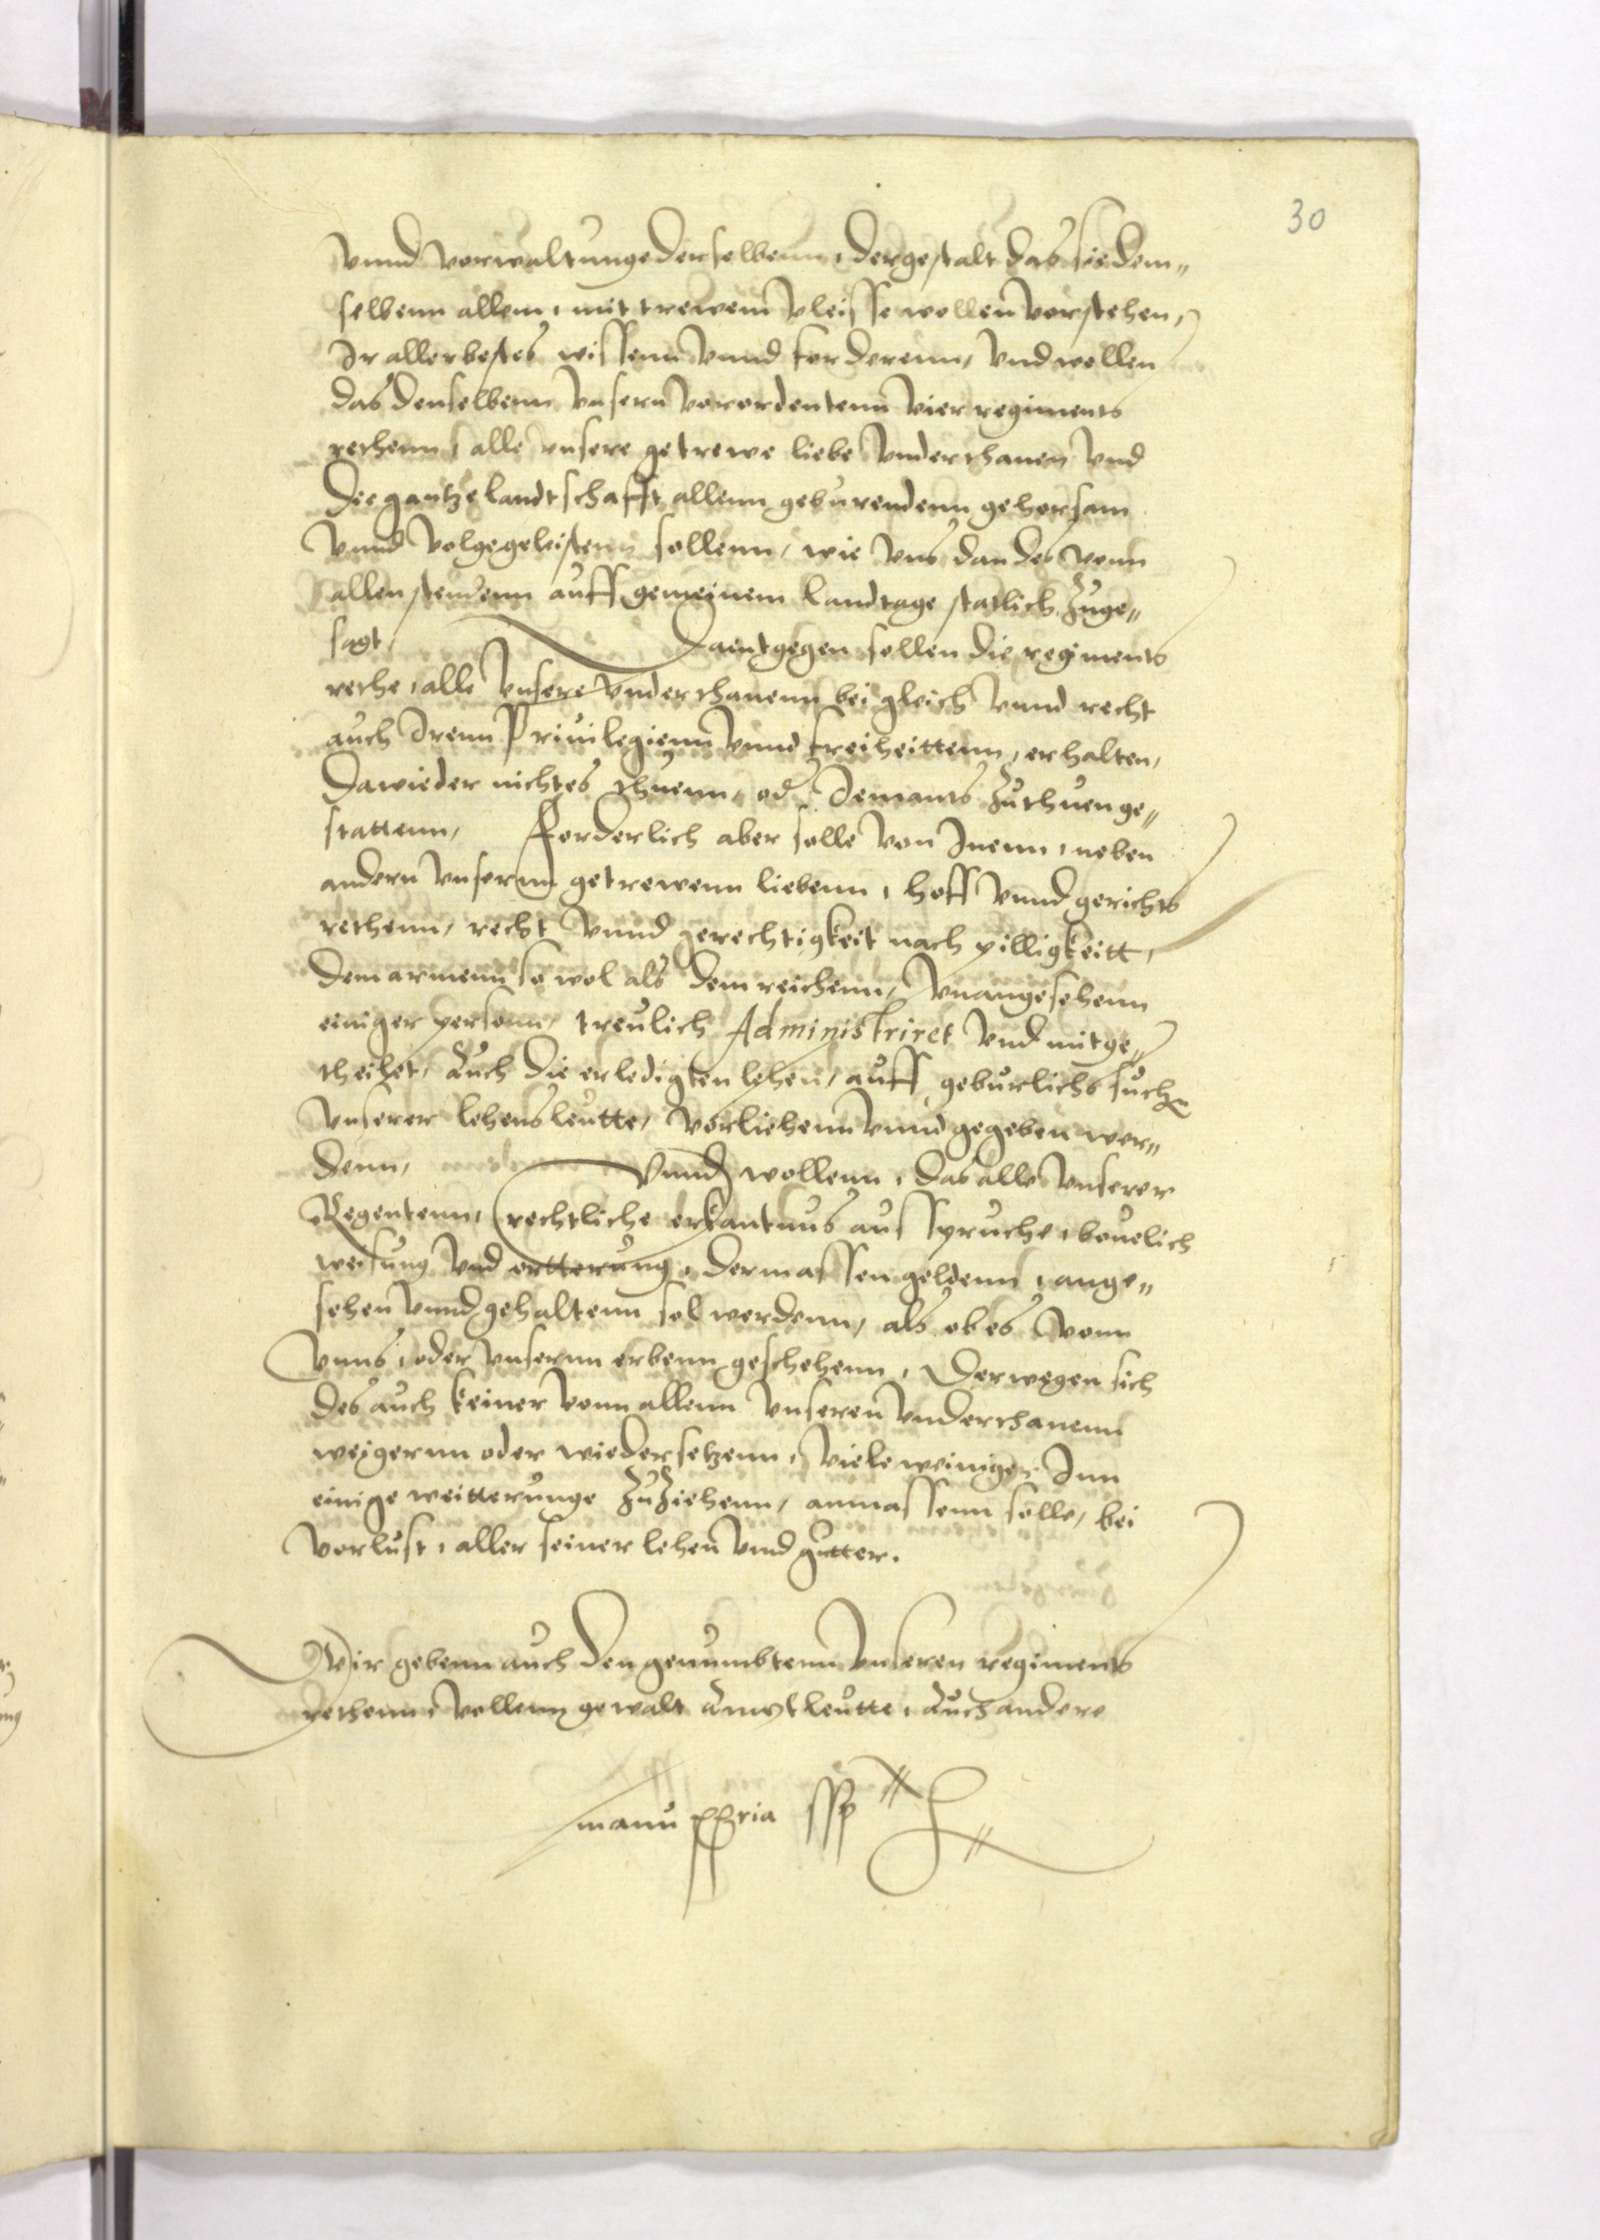 30
vnnd verwaltunge derselbenn, dergestalt das sie dem„
selbenn allem, mit trewem vleisse wollen vorstehen,
Ir allerbestes wissenn vnnd forderenn, vnd wollen
das denselbenn vnsern verordentenn vier regiments
rethenn, alle vnsere getrewe liebe vnderthanen vnd
die gantze landtschafft allenn geburendenn gehorsam
vnnd volge geleistenn sollenn, wie vns dan des vonn
allen stendenn auff gemeinem landtage statlich zuge„
sagt, Daentgegen sollen die regiments
rethe, alle vnsere vnderthanenn bei gleich vnnd recht
auch Irenn Priuilegienn vnnd freiheittenn, erhalten,
Dawieder nichtes thuenn, od Jemants zuthuen ge„
stattenn, Forderlich aber solle von Inenn, neben
andern vnsernn getrewenn liebenn, hoff vnnd gerichts
rethenn, recht vnnd gerechtigkeit nach pilligkeitt,
dem armenn so wol als dem reichenn, vnangesehenn
einiger personn, treulich Administriret vnd mitge„
theilet, Auch die erledigten lehen, auff geburlichs suchn
vnserer lehensleutte, vorliehenn vnnd gegeben wer„
denn, Vnnd wollenn, das alle vnserer
Regentenn, rechtliche erkantnus ausspruche, beuelich
weisung vnd ortterung, dermassen geldenn, ange„
sehen vnnd gehaltenn sol werdenn, als ob es vonn
vnns, oder vnsernn erbenn geschehenn, Derwegen sich
des auch keiner vonn allenn vnseren vnderthanenn
weigernn oder wiedersetzenn, viele weiniger Inn
einige weitterunge zuziehenn, anmassenn solle, bei
verlust, aller seiner lehen vnd gutter.
Wir gebenn auch den genumbtenn vnseren regiments
rethenn, vollenn gewalt Amptleutte, Auch andere
manu ppria ssp